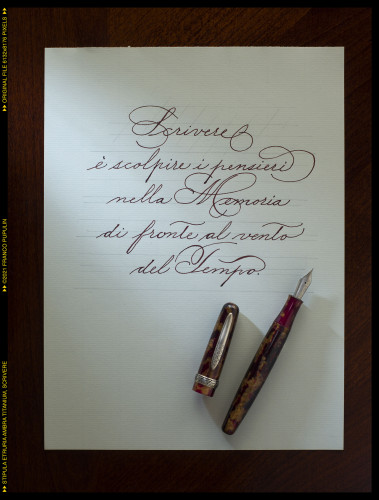 Scrivere
è scolpire i pensieri
nella Memoria
di fronte al vento
del Tempo.
ORIGINAL FILE 6132x8176 PIXELS
©2021 FRANCO PUPULIN
STIPULA ETRURIA AMBRA TITANIUM, SCRIVERE